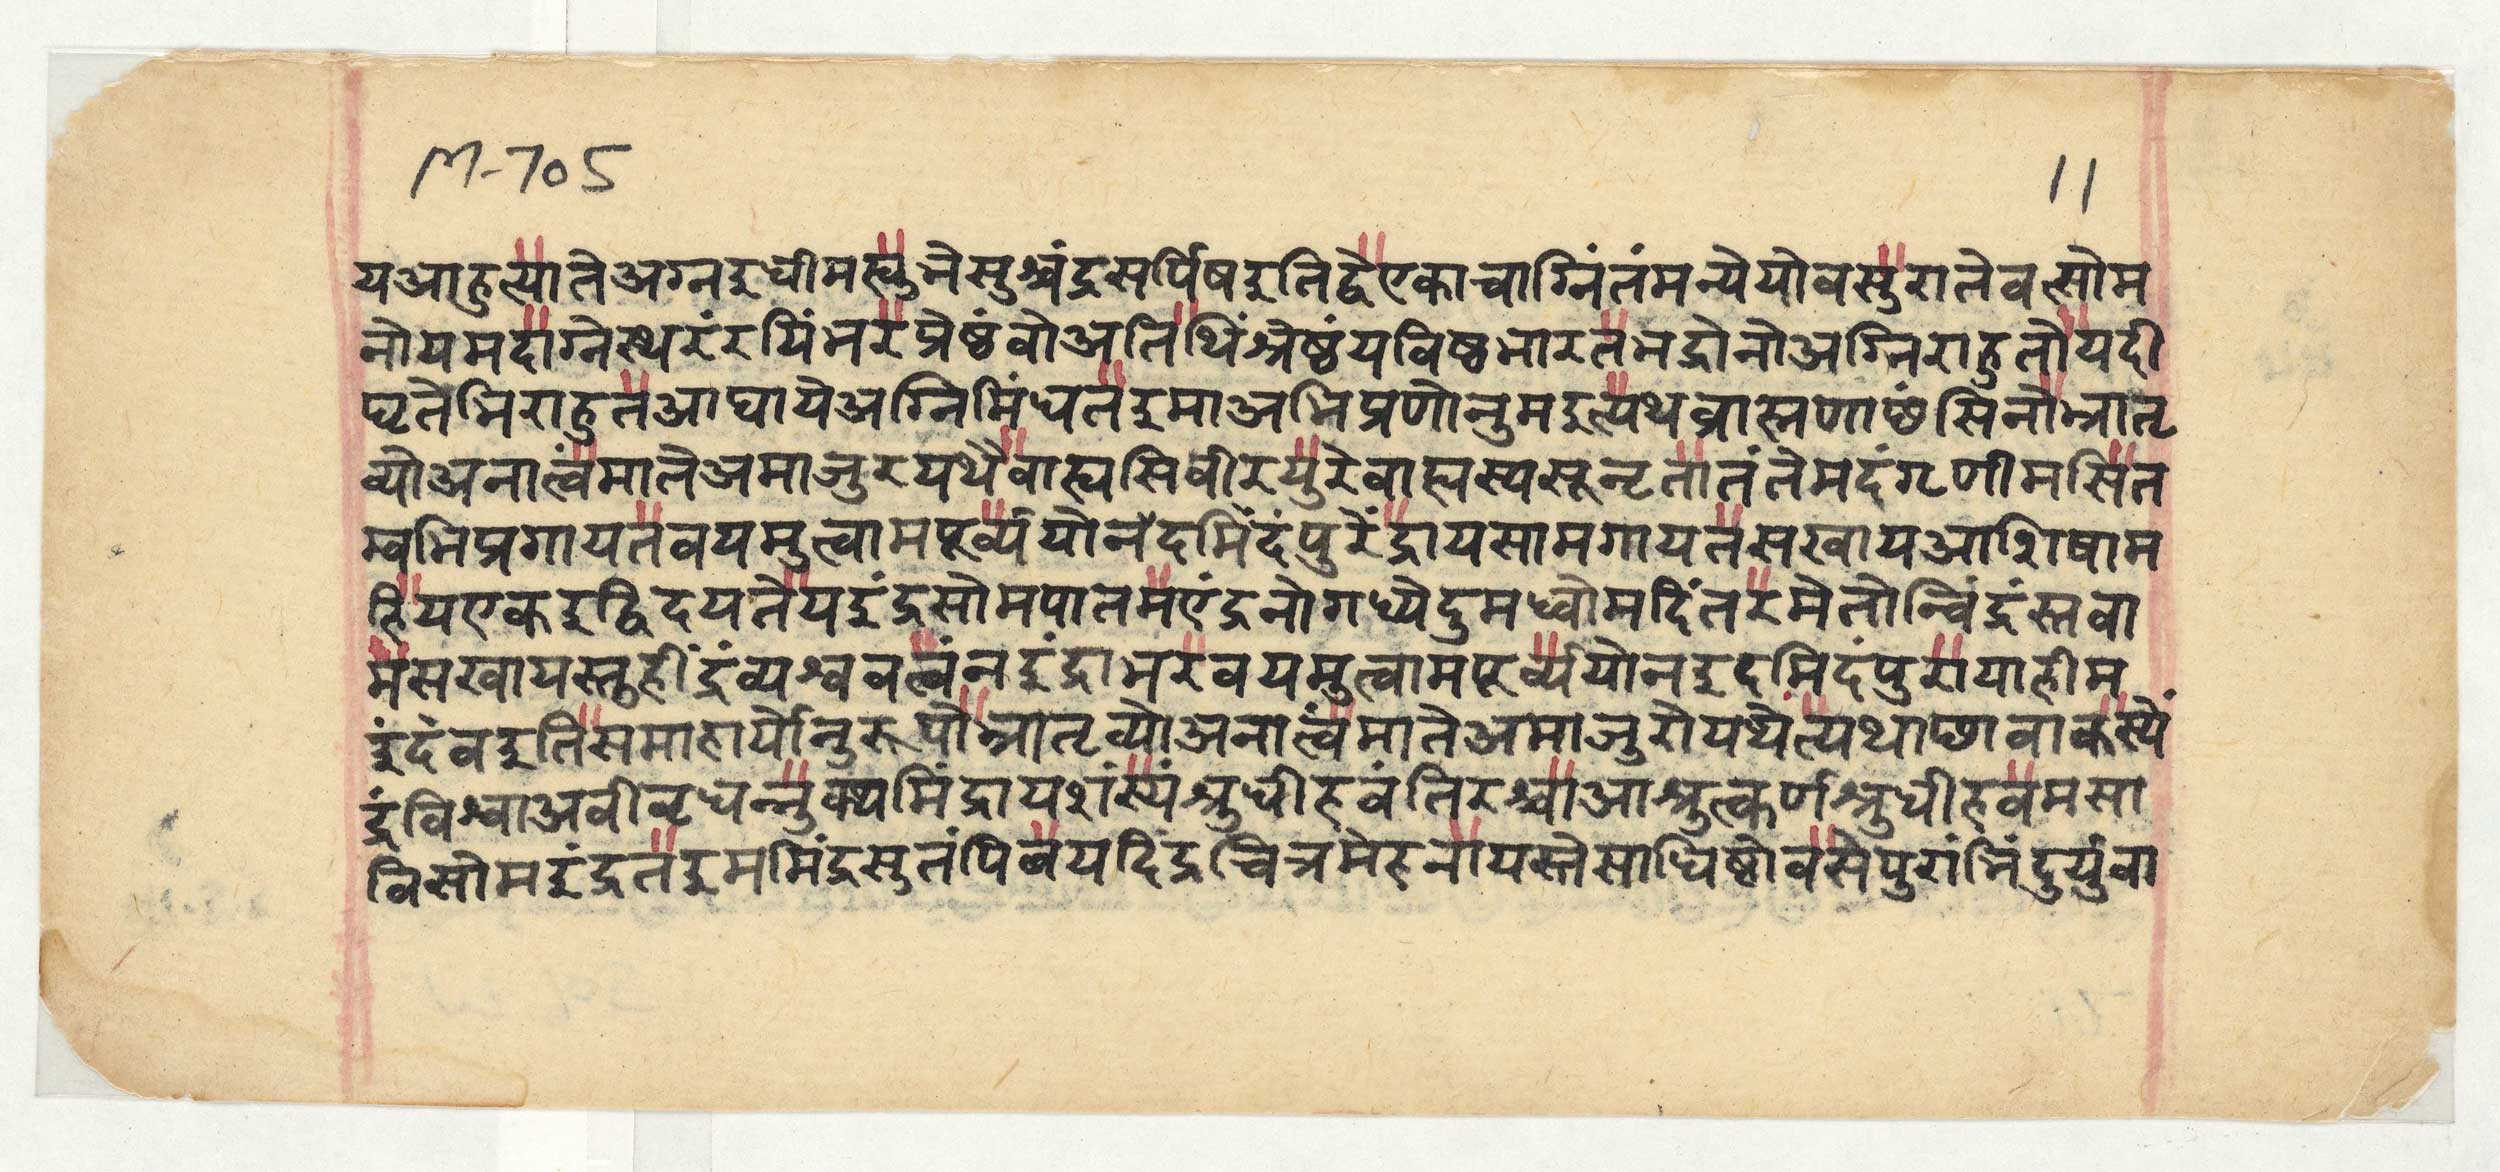 M-705 11
यआहुत्याते अग्नइधीमह्युभेसुश्चंद्रसर्पिषइतिद्वेएकाचाग्निंतंमन्येयोवसुरातेवत्सोम
नोयमदाग्नेस्थूरंरयिंभरप्रेष्ठंवोअतिथिंश्रेष्ठंयविष्ठभारतभद्रोनोअग्निराहुतोयदी
घृतेभिराहुतआघायेअग्निमिंधतइमाअभिप्रणोनुमइत्यथब्राह्मणाछंसिनोभ्रातृ
व्योअनात्वंमातेअमाजुरयथैवाह्यसिवीरयुरेवाह्यस्यसूनृतातंतेमदंगृणीमसित
म्वभिप्रगायतवयमुत्वामपूर्व्ययोनइदमिदंपुरेंद्रायसामगायतसखायआशिषाम
हियएकइद्विदयतेयइंद्रसोमपातमएंद्रनोगध्येदुमध्वोमदिंतरमेतोन्विंद्रंस्तवा
मसखायस्तुहींद्रंव्यश्ववत्त्वंनइंद्राभरवयमुत्वामपूर्व्ययोनइदमिदंपुरायाहीम
इंदवइतिसमाहार्योनुरूपोभ्रातृव्योअनात्वंमातेअमाजुरोयथेत्यथाछावाकस्यें
द्रंविश्वाअवीवृधन्नुक्थमिंद्रायशंस्यंश्रुधीहवंतिरश्च्याआश्रुत्कर्णश्रुधीहवमसा
विसोमइंद्रतइममिंद्रसुतंपिबयदिंद्रचित्रमेहनायस्तेसाधिष्ठोवसेपुरांभिंदुर्युवा